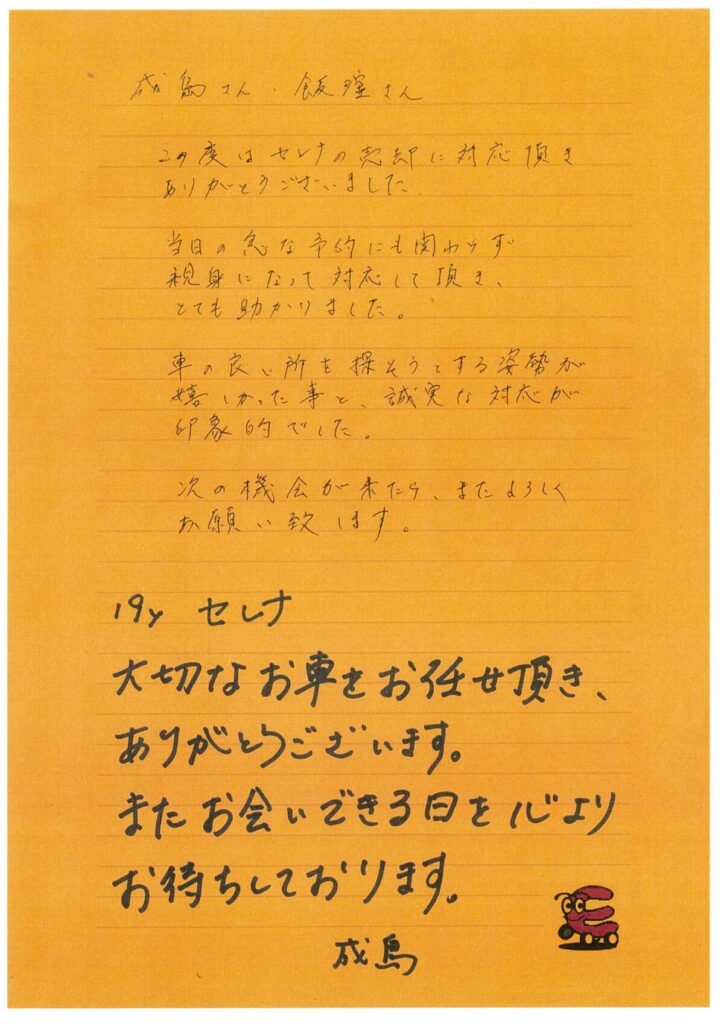 成島さん・飯窪さん
この度はセレナの売却に対応頂き
ありがとうございました。
当日の急な予約にも関わらず
親身になって対応して頂き、
とても助かりました。
車の良い所を探そうとする姿勢が
嬉しかった事と、誠実な対応が
印象的でした。
次の機会が来たら、またよろしく
お願い致します。
19y セレナ
大切なお車をお任せ頂き、
ありがとうございます。
またお会いできる日を心より
お待ちしております。
成島